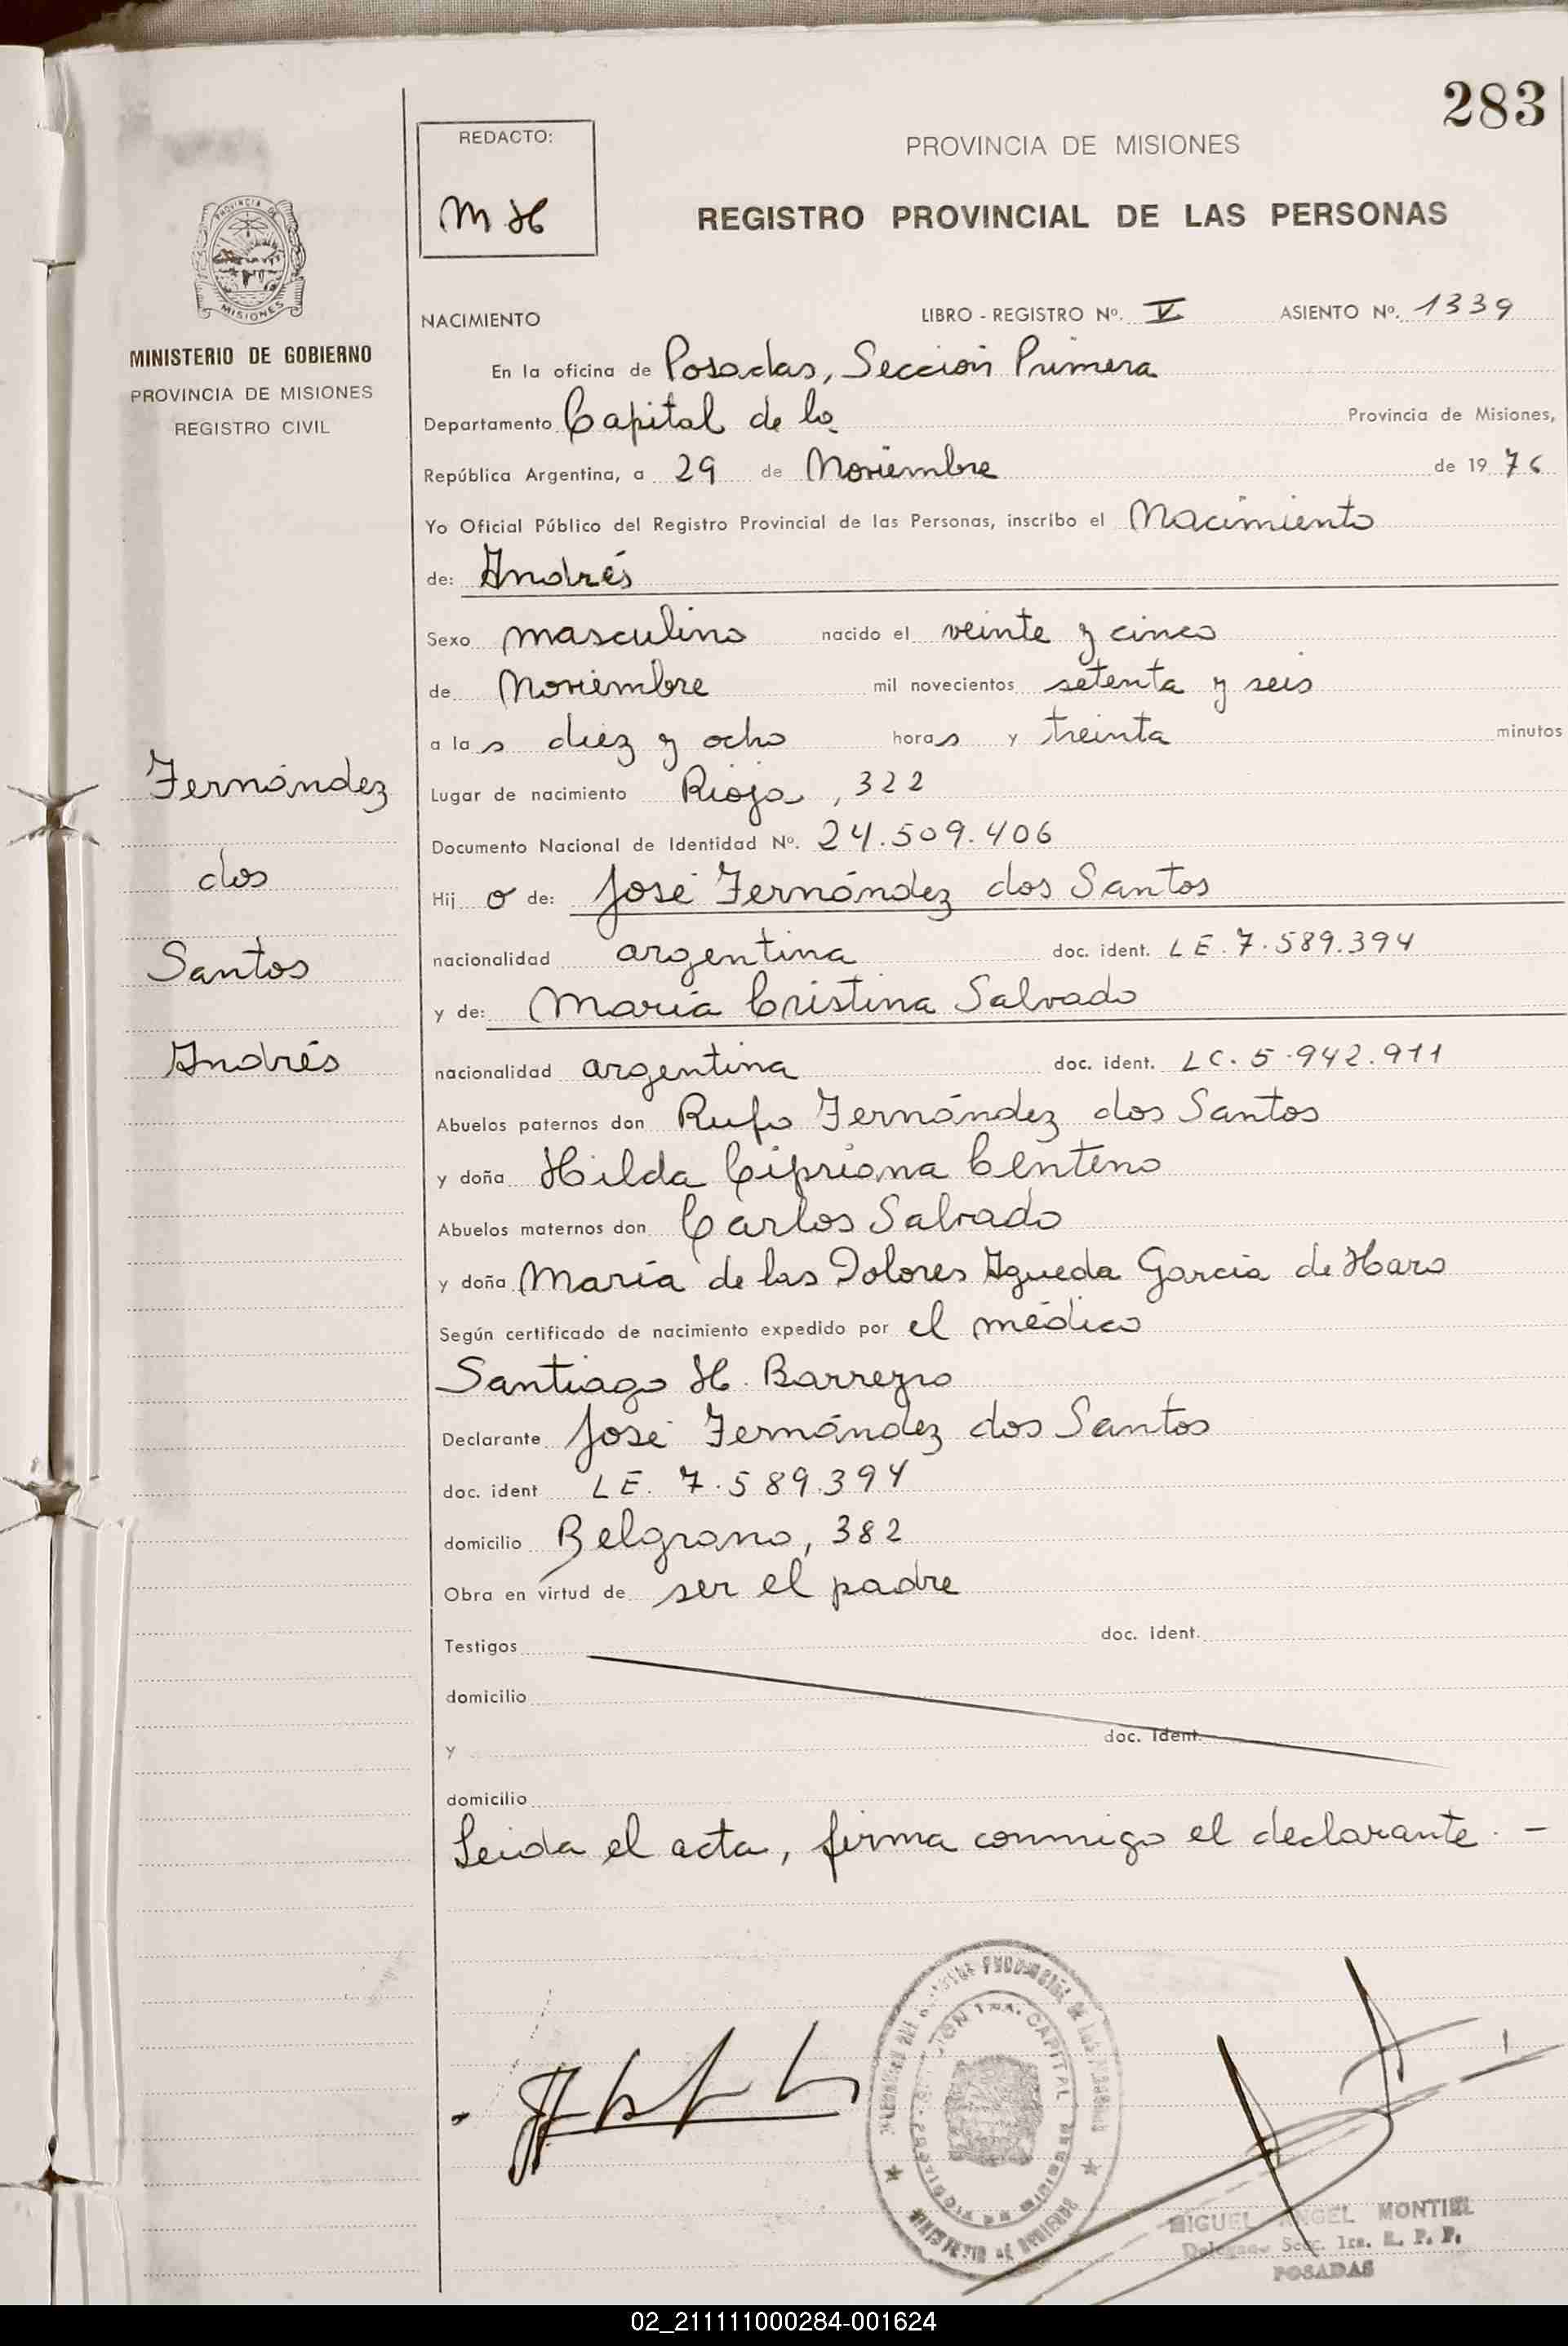 283
REDACTO:
M H
PROVINCIA DE MISIONES
REGISTRO PROVINCIAL DE LAS PERSONAS
PROVINCIA DE
MISIONES
MINISTERIO DE GOBIERNO
PROVINCIA DE MISIONES
REGISTRO CIVIL
NACIMIENTO LIBRO - REGISTRO Nº. V ASIENTO Nº. 1339
En la oficina de Posadas, Sección Primera
Departamento Capital de la Provincia de Misiones,
República Argentina, a 29 de Noviembre de 1976
Yo Oficial Público del Registro Provincial de las Personas, inscribo el Nacimiento
de: Andrés
Sexo masculino nacido el veinte y cinco
de Noviembre mil novecientos setenta y seis
a las diez y ocho horas y treinta minutos
Fernández
dos
Santos
Andrés
Lugar de nacimiento Rioja, 322
Documento Nacional de Identidad Nº. 24.509.406
Hijo de: José Fernández dos Santos
nacionalidad argentina doc. ident. LE. 7.589.394
y de: María Cristina Salvado
nacionalidad argentina doc. ident. LC. 5.942.911
Abuelos paternos don Rufo Fernández dos Santos
y doña Hilda Cipriana Centeno
Abuelos maternos don Carlos Salvado
y doña María de las Dolores Agueda García de Haro
Según certificado de nacimiento expedido por el médico
Santiago H. Barreyro
Declarante José Fernández dos Santos
doc. ident LE. 7.589.394
domicilio Belgrano, 382
Obra en virtud de ser el padre
Testigos doc. ident.
domicilio
y doc. ident.
domicilio
Leida el acta, firma conmigo el declarante. -
CAPITAL
MINISTERIO DE GOBIERNO
MIGUEL ANGEL MONTIEL
Delegado Secc. 1ra. R. P. P.
POSADAS
02_211111000284-001624